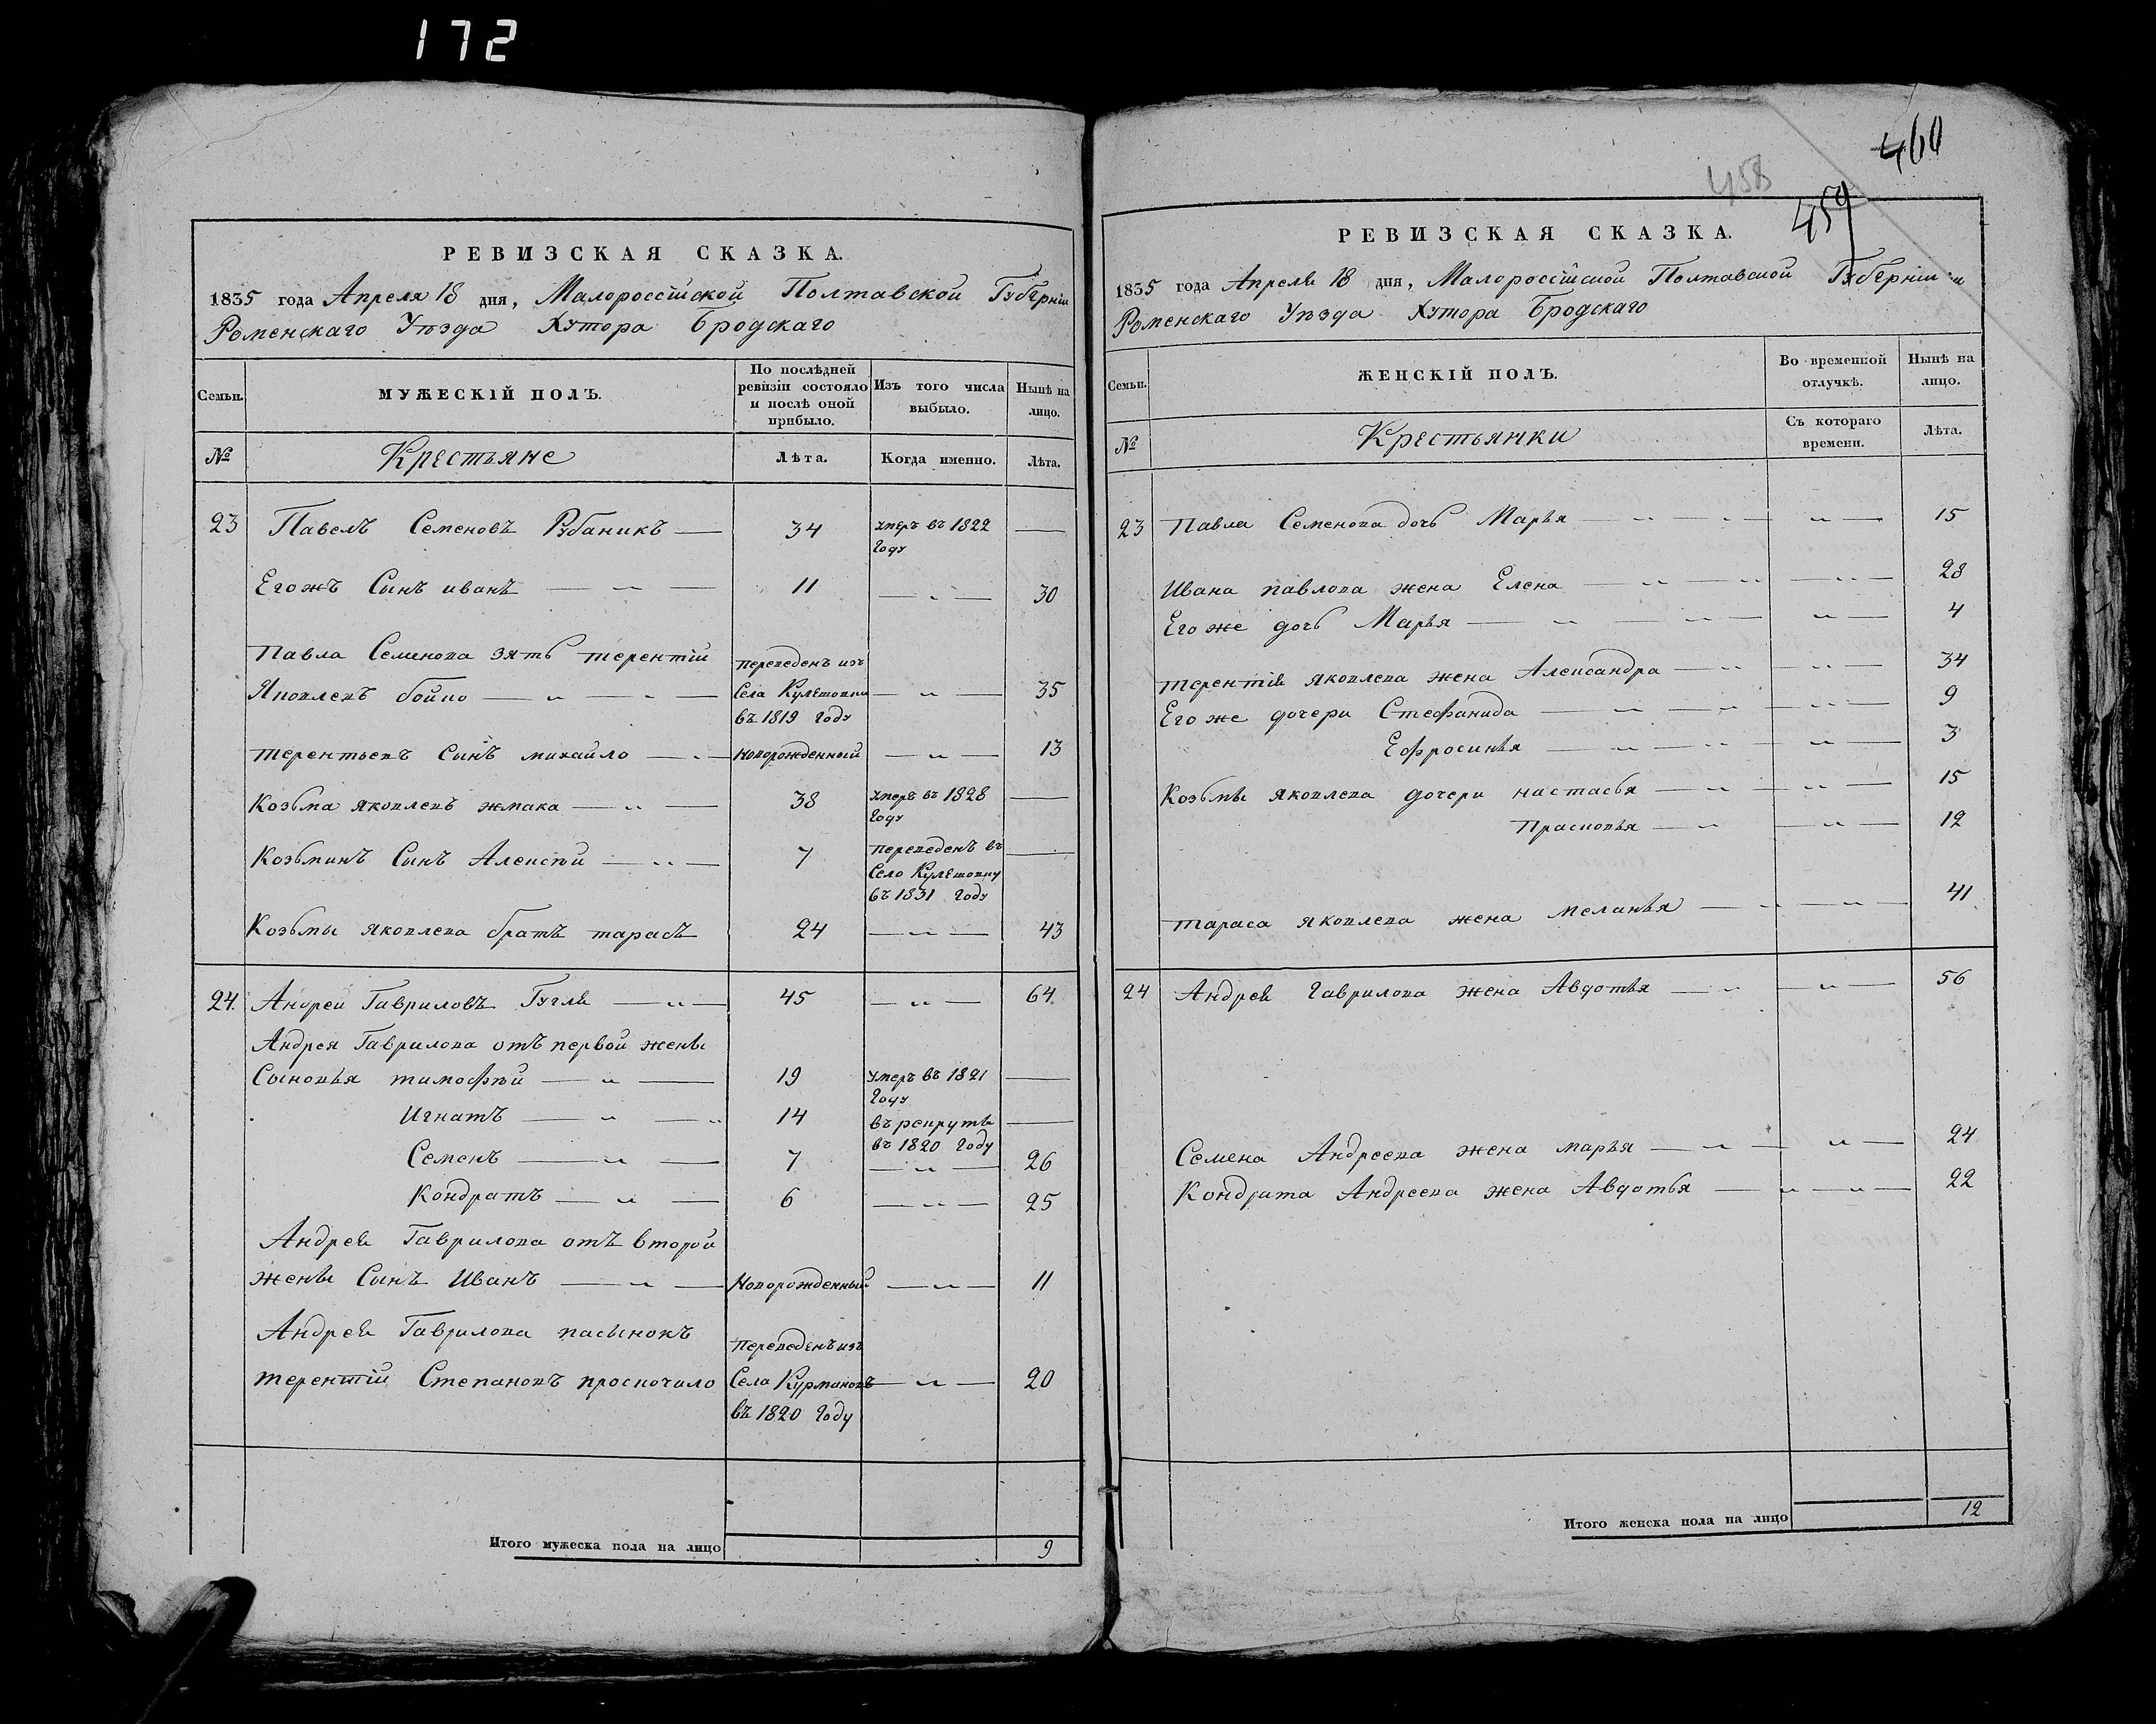 172
РЕВИЗСКАЯ СКАЗКА.
1835 года Апреля 18 дня, Малороссійской Полтавской Губерніи
Роменскаго Уѣзда Хутора Бродскаго
Семьи.
МУЖЕСКІЙ ПОЛЪ.
По послѣдней ревизіи состояло и послѣ оной прибыло.
Изъ того числа выбыло.
Нынѣ на лицо.
№ Крестьяне Лѣта. Когда именно. Лѣта.
23 Павелъ Семеновъ Рубаникъ — 34 умеръ въ 1822 Году —
Егожъ Сынъ иванъ — 11 — 30
Павла Семенова зять терентій
Яковлевъ бойко — переведенъ изъ Села Кулешовки въ 1819 Году — 35
терентьевъ Сынъ михайло — новорожденный — 13
Козьма яковлевъ жмака — 38 умеръ въ 1828 Году —
Козьминъ Сынъ Алексѣй — 7 переведенъ въ Село Кулешовку въ 1831 Году —
Козьмы яковлева братъ тарасъ 24 — 43
24. Андрей Гавриловъ — 45 — 64
Андрея Гаврилова отъ первой жены
Сыновья тимофѣй — 19 умеръ въ 1821 Году —
Игнатъ — 14 въ рекруты въ 1820 Году —
Семенъ — 7 — 26
Кондратъ — 6 — 25
Андрея Гаврилова отъ второй
жены Сынъ Иванъ — Новорожденный — 11
Андрея Гаврилова пасынокъ
терентій Степановъ — переведенъ изъ Села Курмановъ въ 1820 Году — 20
Итого мужеска пола на лицо 9
460
458
459
РЕВИЗСКАЯ СКАЗКА.
1835 года Апреля 18 дня, Малороссійской Полтавской Губерніи
Роменскаго Уѣзда Хутора Бродскаго
Семьи.
ЖЕНСКІЙ ПОЛЪ.
Во временной отлучкѣ.
Нынѣ на лицо.
№ Крестьянки Съ котораго времени. Лѣта.
23 Павла Семенова дочь Марья — 15
Ивана павлова жена Елена — 28
Его же дочь Марья — 4
терентія яковлева жена Александра — 34
Его же дочери Стефанида — 9
Ефросинья — 3
Козьмы яковлева дочери настасья — 15
Прасковья — 12
тараса яковлева жена меланья — 41
24 Андрея Гаврилова жена Авдотья — 56
Семена Андреева жена марья — 24
Кондрата Андреева жена Авдотья — 22
Итого женска пола на лицо 12